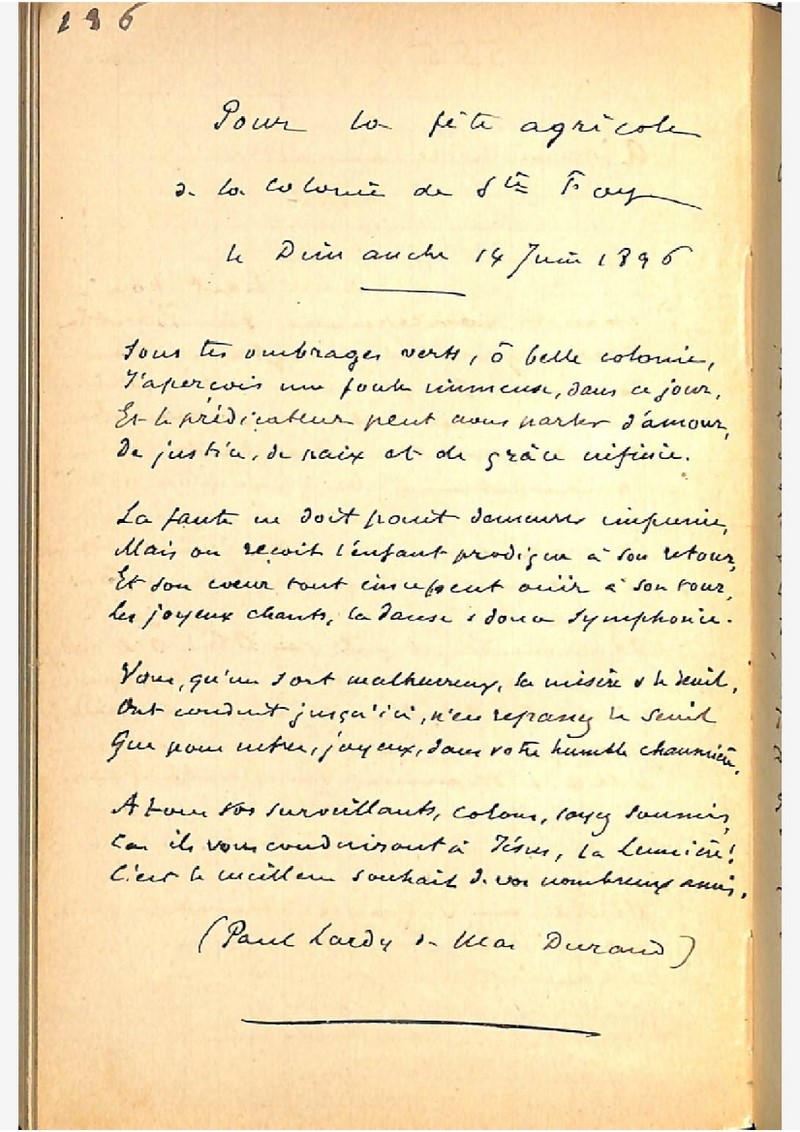 196
Pour la fête agricole
de la colonie de Ste Foy
le Dimanche 14 Juin 1896
Sous tes ombrages verts, ô belle colonie,
J'aperçois une foule immense, dans ce jour,
Et le prédicateur peut nous parler d'amour,
De justice, de paix et de grâce infinie.
La faute ne doit point demeurer impunie,
Mais on reçoit l'enfant prodigue à son retour,
Et son cœur tout à son tour,
Les joyeux chants, la danse & douce symphonie.
Vous, qu'un sort malheureux, la misère & le deuil,
Ont conduit jusqu'ici, n'en repassez le seuil
Que pour entrer, joyeux, dans votre humble chaumière.
A tous vos surveillants, colons, soyez soumis,
Car ils vous conduiront à Jésus, la Lumière!
C'est le meilleur souhait de vos nombreux amis.
(Paul Lardy de Mas Durand)